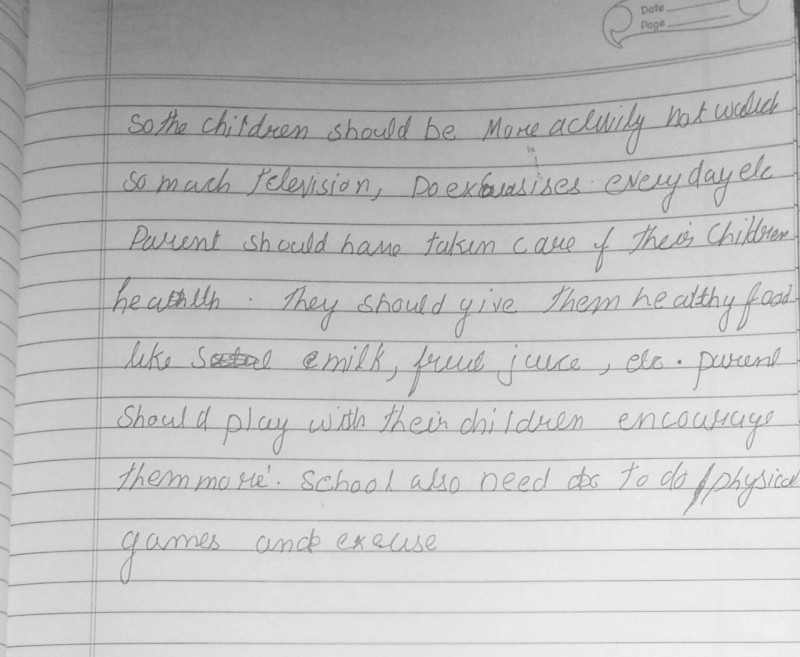 Date
Page
So the children should be More activity not watch
so mach television, Do exerasises everyday etc
Parent should have taken care of their Children
heathlth. They should give them healthy food
like milk, fruit juice, etc. parent
should play with their children encourage
them more. School also need to do physical
games and exeuse